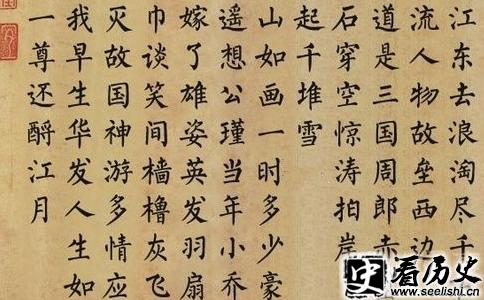 江东去浪淘尽千
流人物故垒西边
道是三国周郎赤
石穿空惊涛拍岸
起千堆雪
山如画一时多少豪
遥想公瑾当年小乔
嫁了雄姿英发羽扇
巾谈笑间樯橹灰飞
灭故国神游多情应
我早生华发人生如
一尊还酹江月
史看历史
www.seelishi.cn